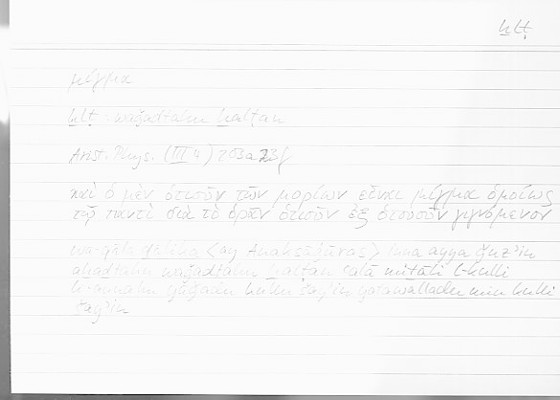 ḫlṭ
μίγμα
ḫlṭ : waǧadtahu ḫalṭan
Arist. Phys. (III 4) 203a23f
καὶ ὁ μὲν ὁτιοῦν τῶν μορίων εἶναι μίγμα ὁμοίως
τῷ παντὶ διὰ τὸ ὁρᾶν ὁτιοῦν ἐξ ὁτουοῦν γιγνόμενον
wa-qāla <ay Anaksāġūras> inna ayya ǧuz'in
aḫadtahu waǧadtahu ḫalṭan ʿalā miṯāli l-kulli
li-annahu yūǧadu kullu šay'in yatawalladu min kulli
šay'in